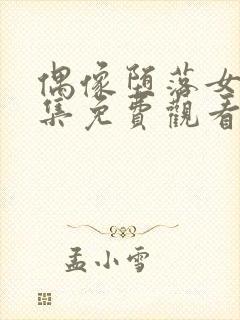 偶像堕落女
集免費觀看
孟小雪